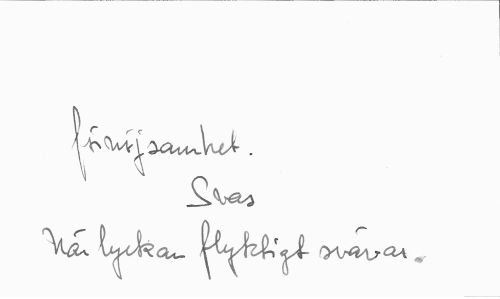 förnöjsamhet.
Svas
När lyckan flyktigt svävar.